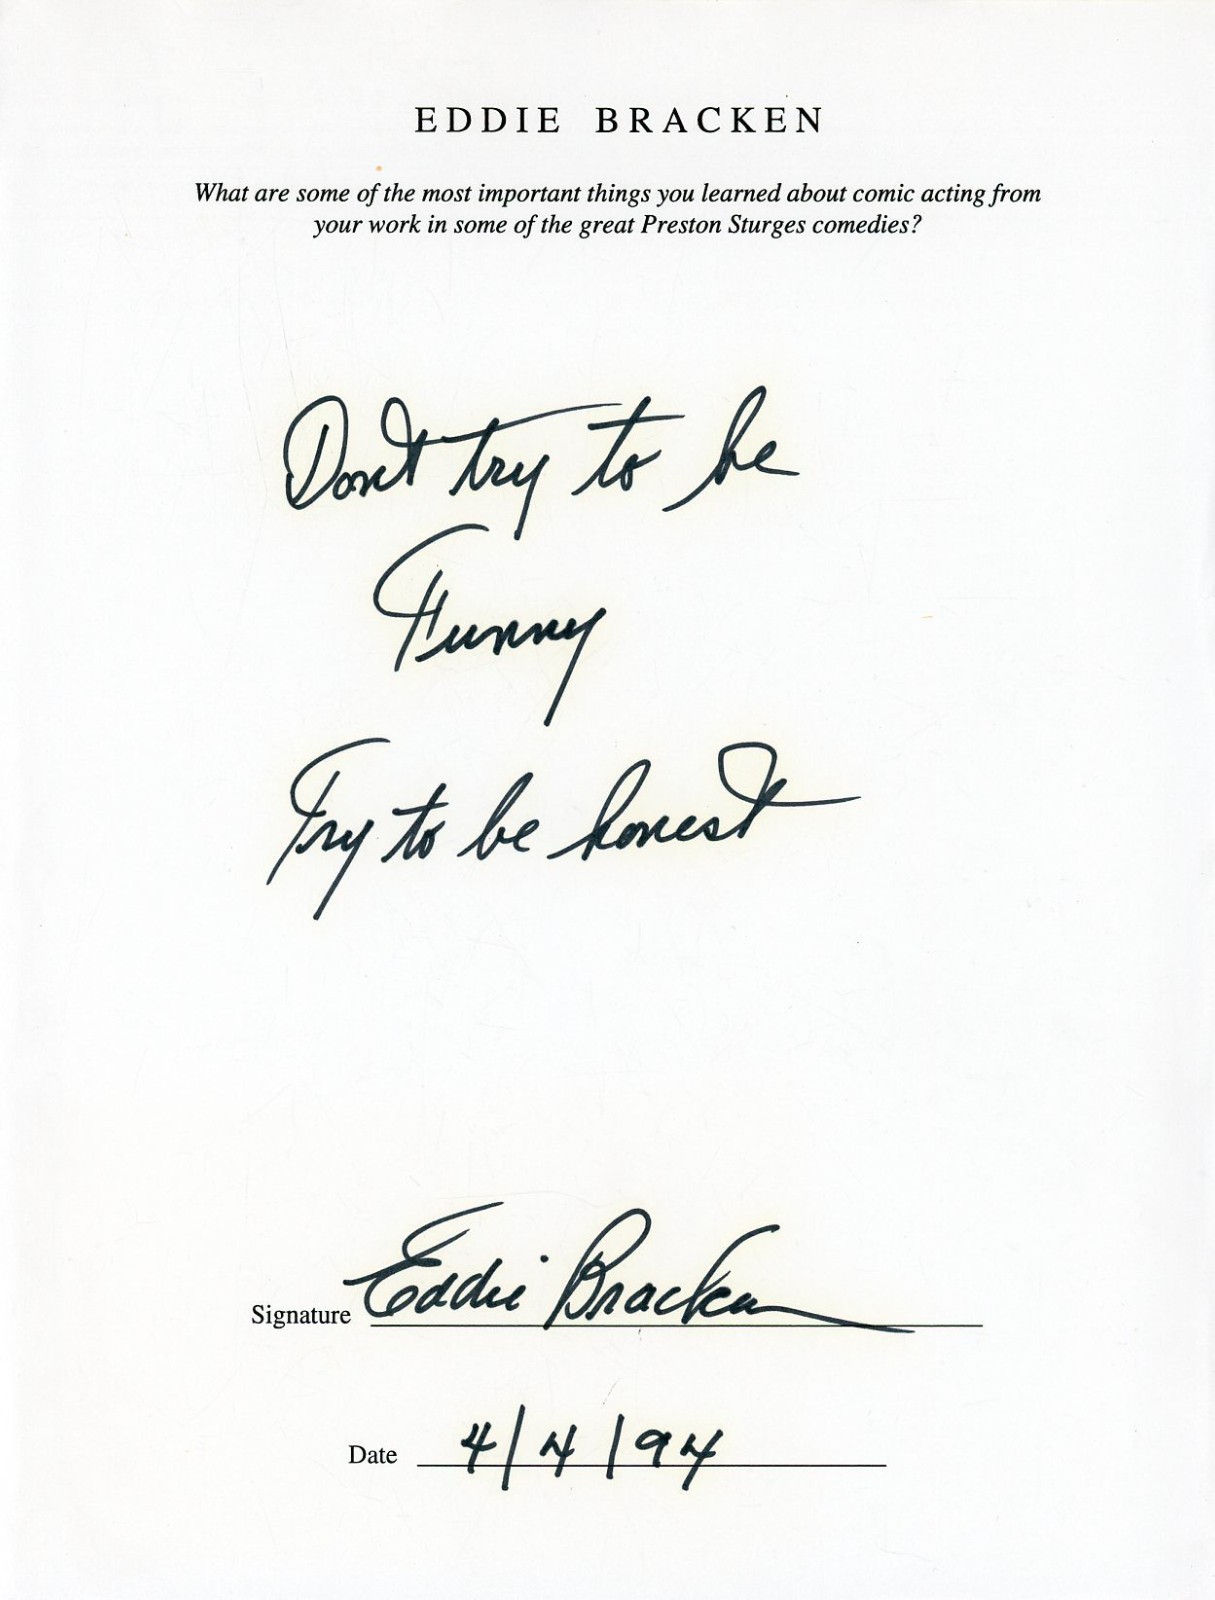 EDDIE BRACKEN
What are some of the most important things you learned about comic acting from
your work in some of the great Preston Sturges comedies?
Don't try to be
Funny
Try to be honest
Signature Eddie Bracken
Date 4/4/94